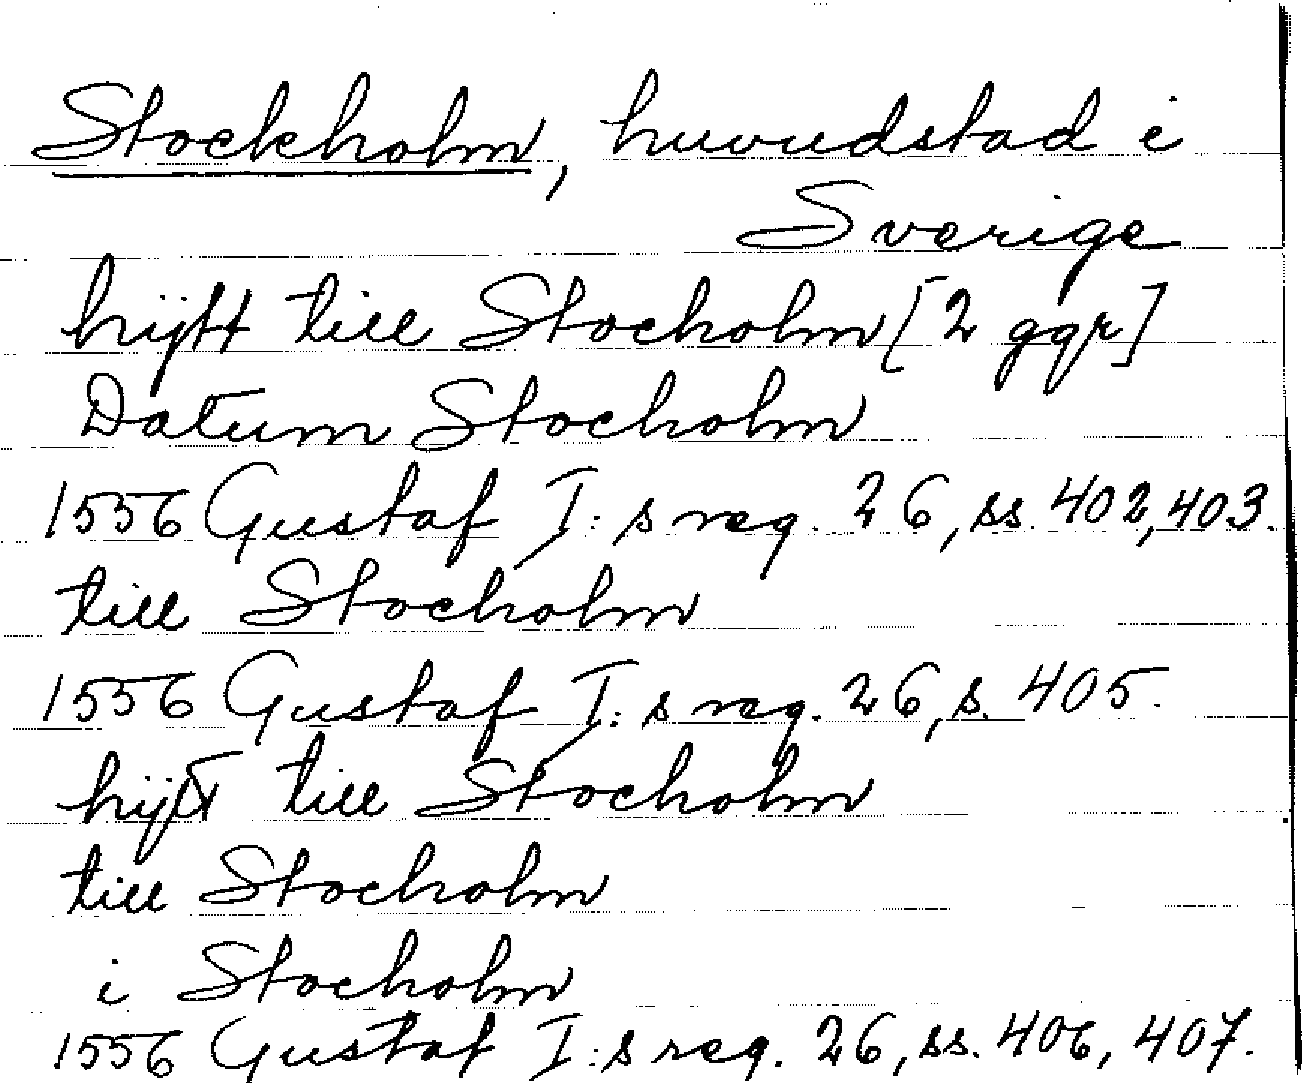 Stockholm, huvudstad i
Sverige
hijtt till Stocholm [2 ggr]
Datum Stocholm
1556 Gustaf I:s reg. 26, ss. 402, 403.
till Stocholm
1556 Gustaf I:s reg. 26, s. 405.
hijtt till Stocholm
till Stocholm
i Stocholm
1556 Gustaf I:s reg. 26, ss. 406, 407.